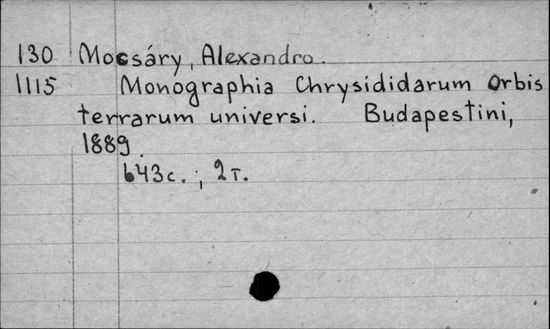 130 Mocsáry, Alexandro.
1115 Monographia Chrysididarum Orbis
terrarum universi. Budapestini,
1889.
643с., 2т.